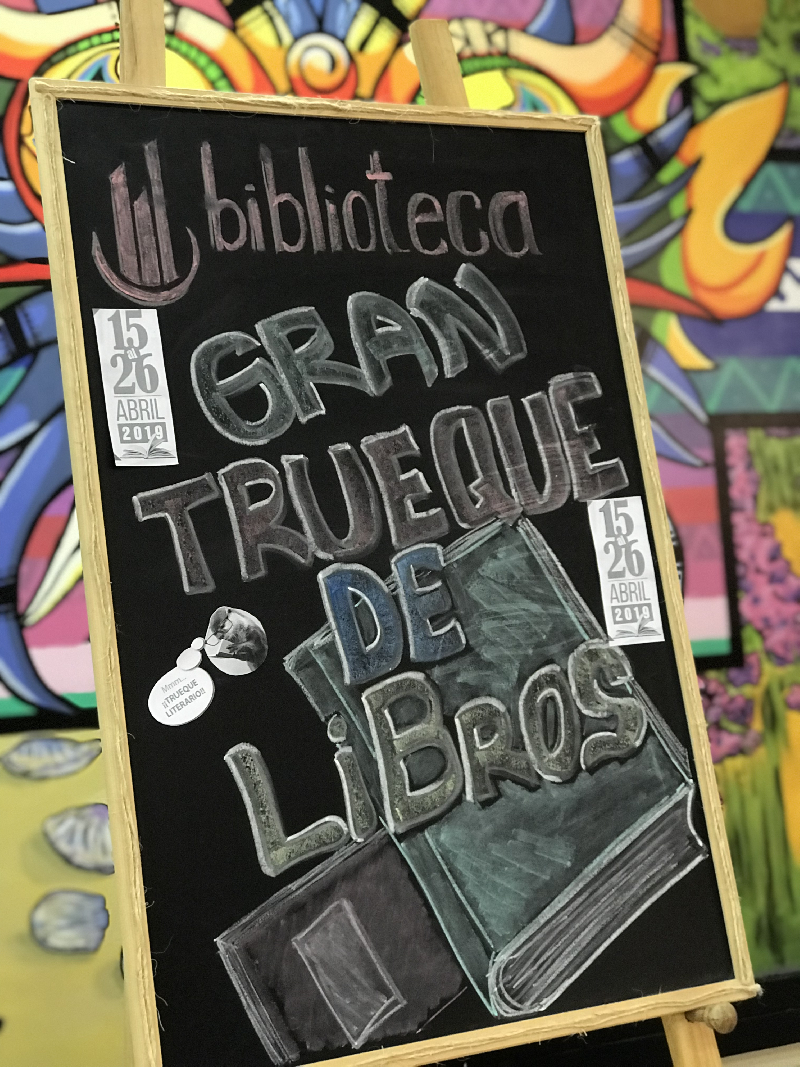 biblioteca
GRAN
TRUEQUE
DE
LiBROS
15
al
26
ABRIL
2019
15
al
26
ABRIL
2019
Mmm...
¡¡TRUEQUE
LITERARIO!!